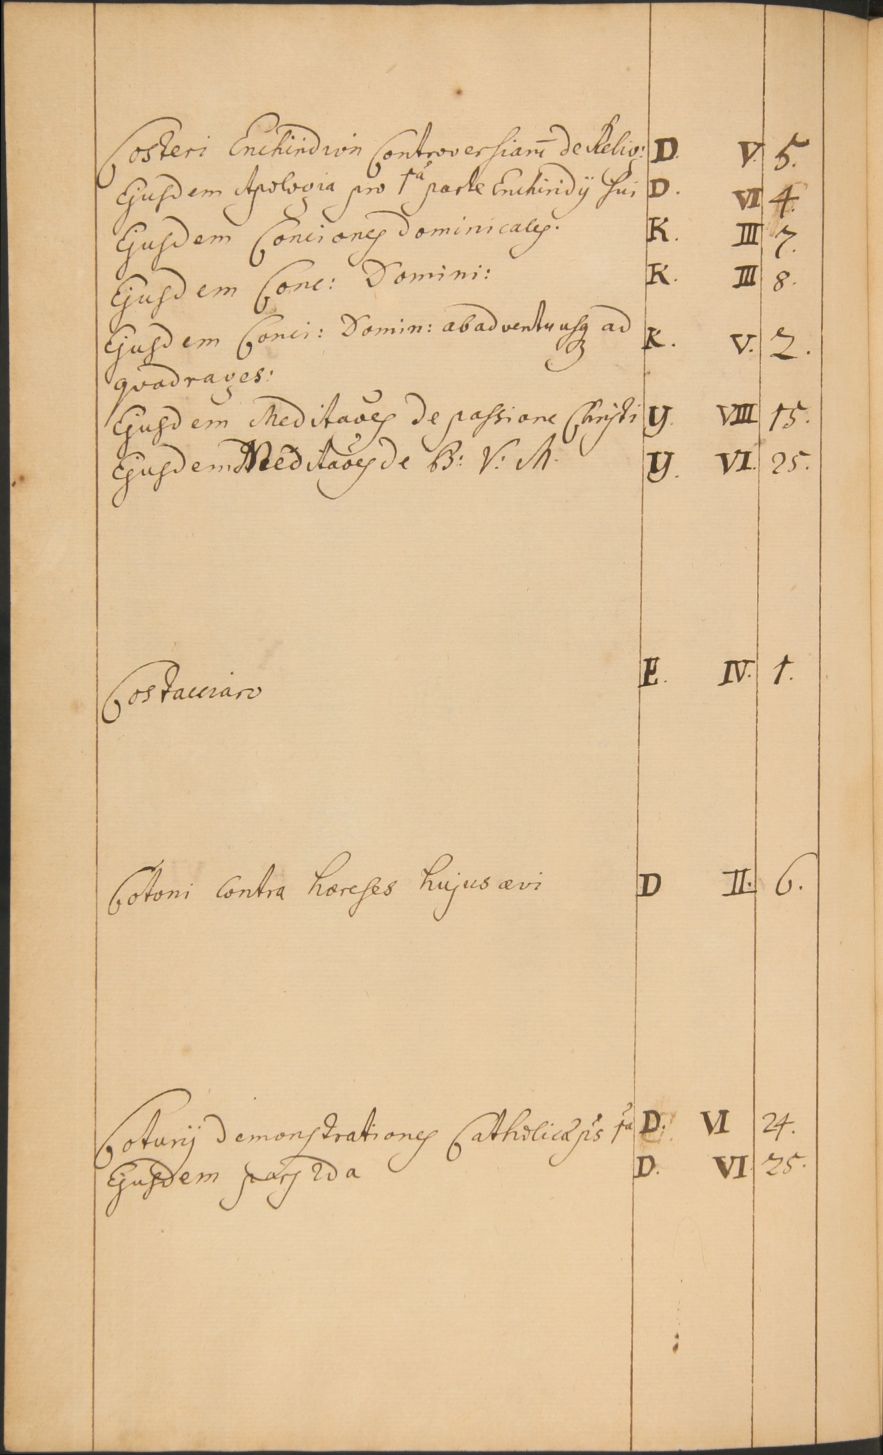 Costeri Enchiridion Controversiarū de Relig: D. V. 5.
Ejusdem Apologia pro 1ᵃ parte Enchiridij sui D. VI 4.
Ejusdem Conciones dominicales. K. III 7.
Ejusdem Conc: Domini: K. III 8.
Ejusdem Conci: Domin: ab adventu usq ad K. V. 2.
quadrages:
Ejusdem Meditaōes de passione Christi Y. VIII 15.
Ejusdem Meditaōes de B: V: M. Y. VI. 25.
Costacciaro E. IV. 1.
Cotoni contra hæreses hujus ævi D II. 6.
Coturij demonstrationes Catholicæ ps 1ᵃ D. VI 24.
Ejusdem pars 2da D. VI 25.